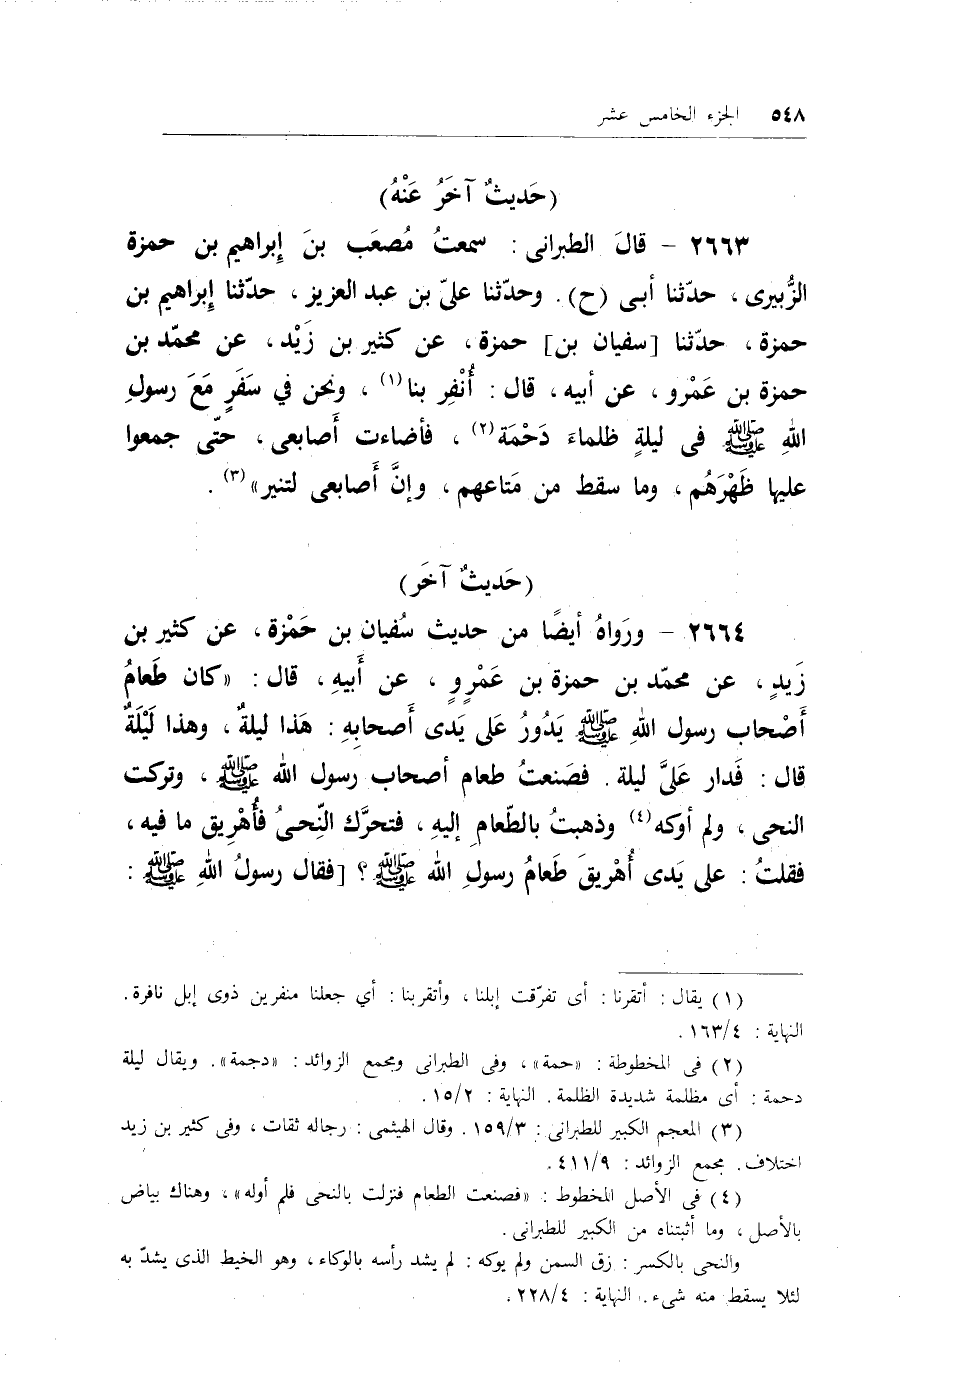 ٥٤٨ الجزء الخامس عشر
(حَديثٌ آخَرُ عَنْهُ)
٢٦٦٣ – قالَ الطبرانى : سمعتُ مُصعَب بنَ إبراهيم بن حمزة
الزُّبيرى ، حدّثنا أبى (ح) . وحدّثنا علىّ بن عبد العزيز ، حدّثنا إبراهيم بن
حمزة ، حدّثنا [سفيان بن] حمزة ، عن كثير بن زَيْد ، عن محمّد بن
حمزة بن عَمْرو ، عن أبيه ، قال : أُنْفِر بنا(١) ، ونحن في سَفَرٍ مَعَ رسولِ
اللهِ ﷺ فى ليلةٍ ظلماءَ دَحْمَة(٢) ، فأضاءت أَصابعى ، حتّى جمعوا
عليها ظَهْرَهُم ، وما سقط من مَتاعهم ، وإنَّ أَصابعى لتنير»(٣) .
(حَديثٌ آخَر)
٢٦٦٤ – ورَواهُ أيضًا من حديث سُفيان بن حَمْزة ، عن كثير بن
زَيدٍ ، عن محمّد بن حمزة بن عَمْرٍو ، عن أَبيهِ ، قال : «كان طَعامُ
أَصْحاب رسول اللهِ ﷺ يَدُورُ عَلى يَدى أَصحابِهِ : هَذا ليلةٌ ، وهذا لَيْلَةٌ
قال : فَدار عَلَىَّ ليلة . فصَنعتُ طعام أصحاب رسول الله ﷺ ، وتركت
النحى ، ولم أوكه(٤) وذهبتُ بالطّعامِ إليهِ ، فتحرَّك النّحىُ فأُهْرِيق ما فيه ،
فقلتُ : على يَدى أُهْريقَ طَعامُ رسولِ الله ﷺ ؟ [فقال رسولُ اللهِ ﷺ :
(١) يقال : أنفرنا : أى تفرّقت إبلنا ، وأنفربنا : أي جعلنا منفرين ذوى إبل نافرة .
النهاية : ١٦٣/٤ .
(٢) فى المخطوطة : «حمة» ، وفى الطبرانى ومجمع الزوائد : «دجمة» . ويقال ليلة
دحمة : أى مظلمة شديدة الظلمة . النهاية : ١٥/٢ .
(٣) المعجم الكبير للطبرانى : ١٥٩/٣ . وقال الهيثمى : رجاله ثقات ، وفى كثير بن زيد
اختلاف . مجمع الزوائد : ٤١١/٩ .
(٤) فى الأصل المخطوط : «فصنعت الطعام فنزلت بالنحى فلم أوله» ، وهناك بياض
بالأصل ، وما أثبتناه من الكبير للطبرانى .
والنحى بالكسر : زق السمن ولم يوكه : لم يشد رأسه بالوكاء ، وهو الخيط الذى يشدّ به
لئلا يسقط منه شىء . النهاية : ٢٢٨/٤ .